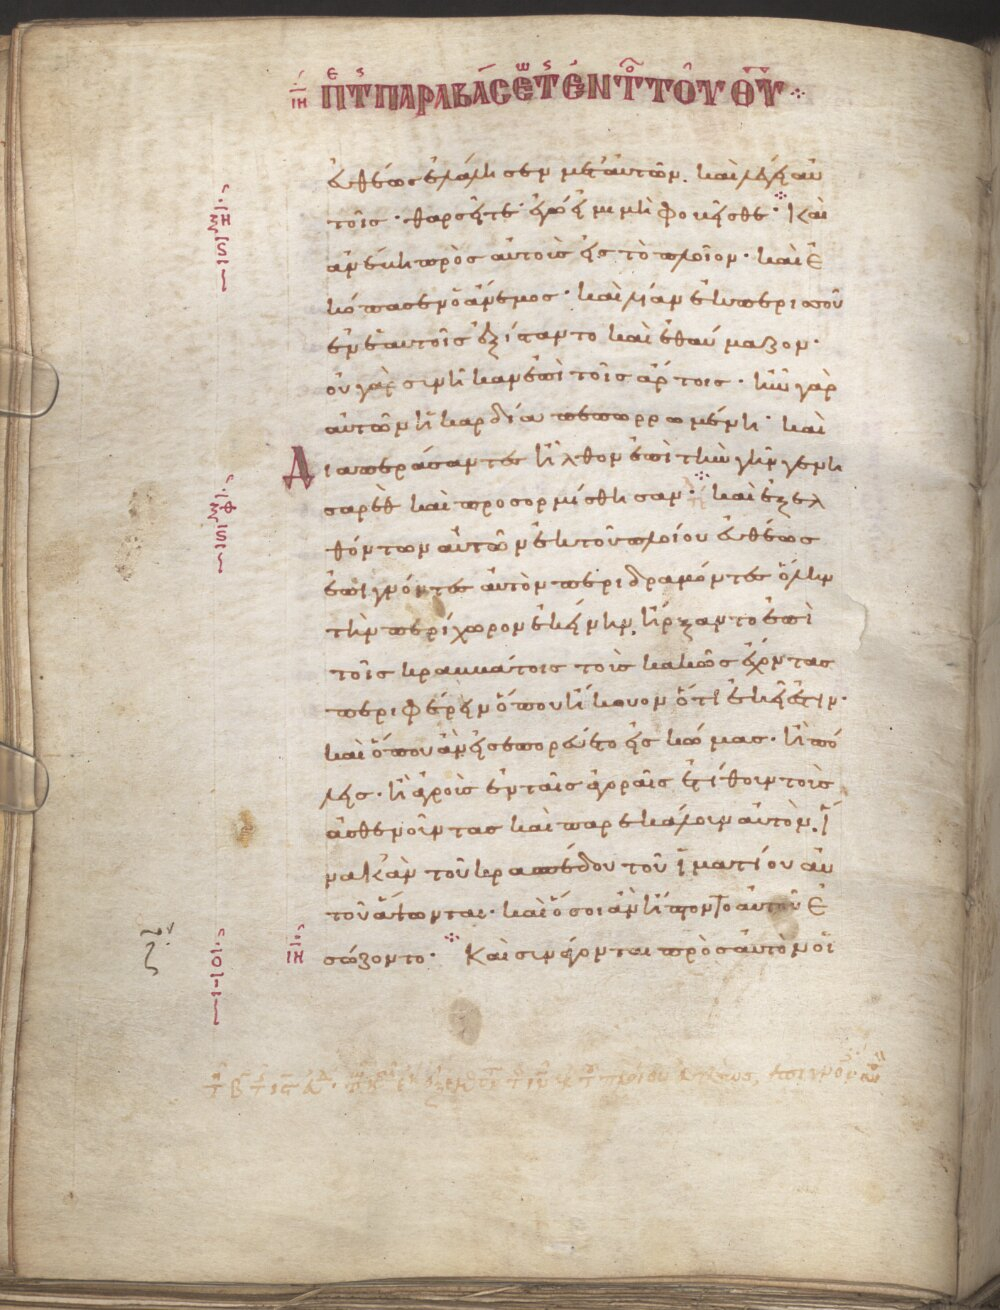 ιη περὶ τῆς παραβάσεως τῆς ἐντολῆς τοῦ θεοῦ
ευθέως ἐλάλησεν μετ' αὐτῶν. καὶ λέγει αὐ
τοῖς · θαρσεῖτε · ἐγώ εἰμι μὴ φοβεῖσθε · Καὶ
ξη
ϛ
ἀνέβη πρὸς αὐτοὺς εἰς τὸ πλοῖον · καὶ ἐ
κόπασεν ὁ ἄνεμος · καὶ λίαν ἐκ περισσοῦ
ἐν ἑαυτοῖς ἐξίσταντο καὶ ἐθαύμαζον ·
οὐ γὰρ συνῆκαν ἐπὶ τοῖς ἄρτοις · ἦν γὰρ
αὐτῶν ἡ καρδία πεπορρωμένη · καὶ
Διαπεράσαντες ἦλθον ἐπὶ τὴν γῆν γενη
ξθ
ϛ
σαρὲθ καὶ προσορμίσθησαν · καὶ ἐξελ
θόντων αὐτῶν ἐκ τοῦ πλοίου εὐθέως
ἐπιγνόντες αὐτὸν περιδραμόντες ὅλην
τὴν περίχωρον ἐκείνην, ἤρξαντο ἐπὶ
τοῖς κραββάτοις τοὺς κακῶς ἔχοντας
περιφέρειν ὅπου ἤκουον ὅτι ἐκεῖ ἐστιν ·
καὶ ὅπου ἂν εἰσεπορεύετο εἰς κώμας · ἢ πό
λεις · ἢ ἀγροὺς ἐν ταῖς ἀγοραῖς ἐτίθουν τοὺς
ἀσθενοῦντας καὶ παρεκάλουν αὐτὸν. ἵ
να κἂν τοῦ κρασπέδου τοῦ ἱματίου αὐ
τοῦ ἅψωνται · καὶ ὅσοι ἂν ἥπτοντο αὐτοῦ ἐ
ο
ι
ιη
σώζοντο · Καὶ συνάγονται πρὸς αὐτὸν οἱ